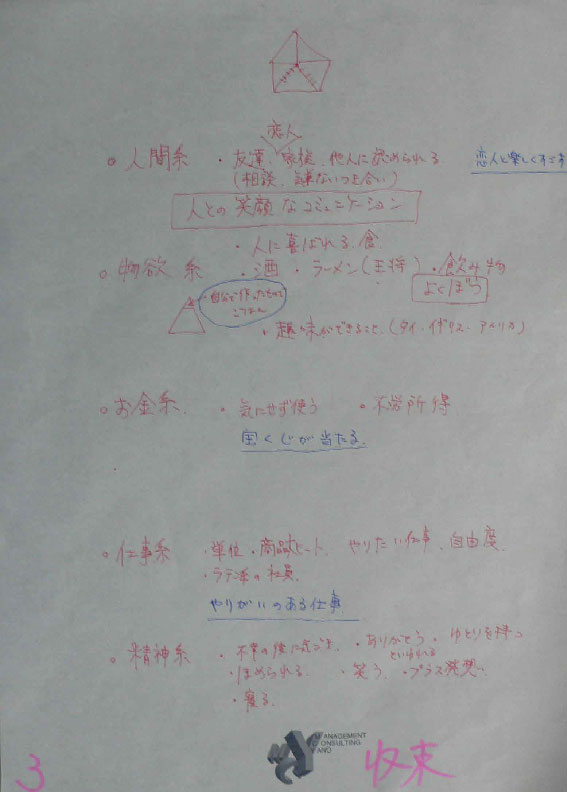 恋人
○ 人間系 ・友達、家族、他人に認められる 恋人と楽しくすごす
(相談、 つき合い)
人との笑顔なコミュニケーション
・人に喜ばれる 食
○ 物欲系 ・酒 ・ラーメン(王将) ・飲み物
よくぼう
・自分で作った
ごはん
・趣味ができること(タイ・イギリス・アメリカ)
○ お金系 ・気にせず使う ・不労所得
宝くじが当たる
○ 仕事系 ・単位・商品ヒート、やりたい仕事、自由度
・ラテン系の社員
やりがいのある仕事
○ 精神系 ・ありがとう ・ゆとりを持つ
といわれる
・ほめられる ・笑う ・プラス発想
・寝る
MANAGEMENT
CONSULTING
YANO
3 収束